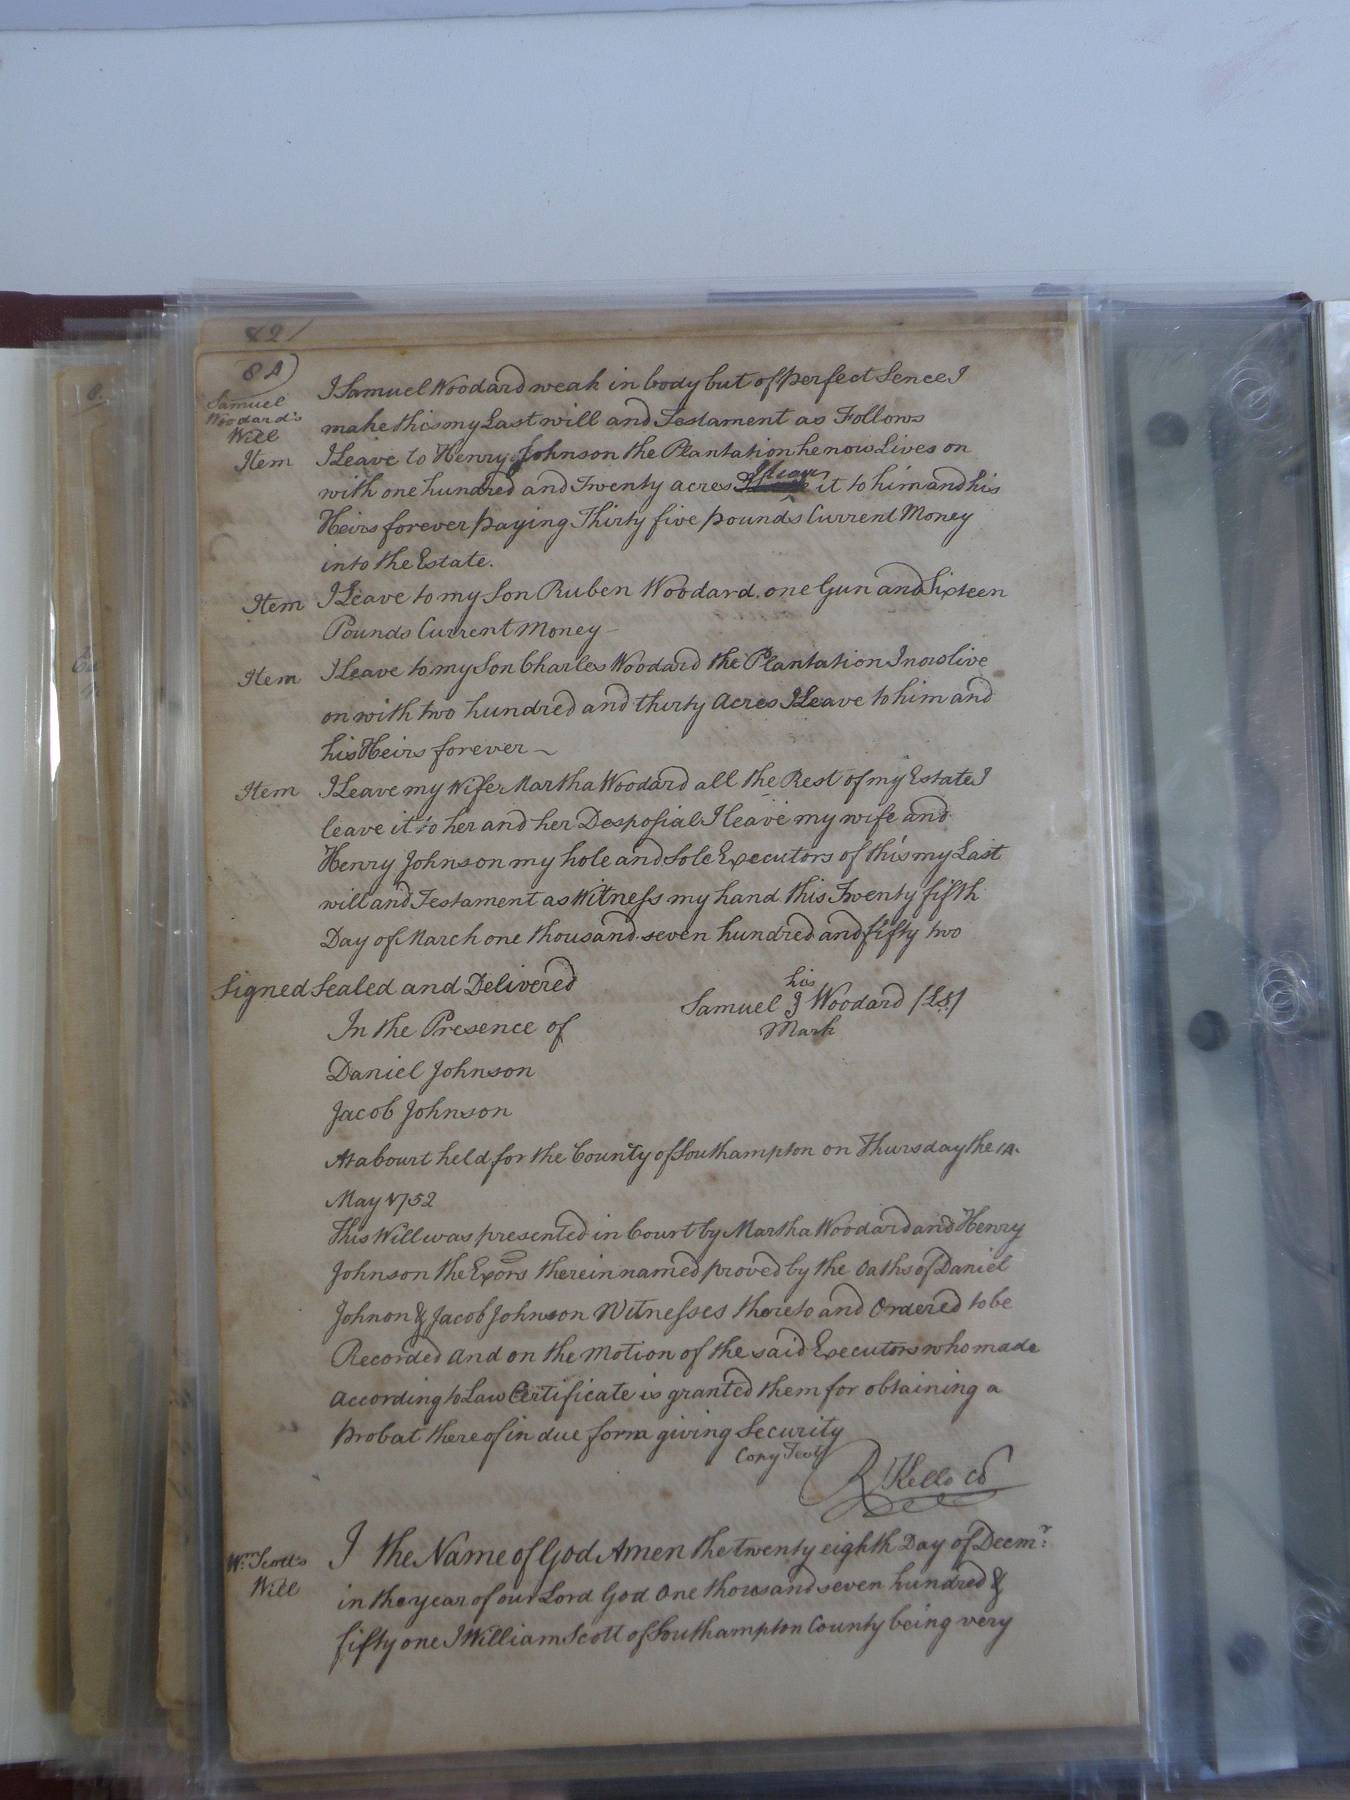 82)
84)
Samuel
Woodard's
Will
I Samuel Woodard weak in body but of perfect Sence I
make this my Last will and Testament as Follows
Item I Leave to Henry Johnson the Plantation he now Lives on
with one hundred and Twenty acres I leave it to him and his
Heirs forever paying Thirty five pounds Current Money
into the Estate.
Item I Leave to my Son Ruben Woodard one Gun and Sixteen
Pounds Current Money
Item I Leave to my Son Charles Woodard the Plantation I now live
on with two hundred and thirty Acres I Leave to him and
his Heirs forever ~
Item I Leave my Wife Martha Woodard all the Rest of my Estate I
leave it to her and her Desposial I leave my wife and
Henry Johnson my hole and Sole Executors of this my Last
will and Testament as Witness my hand this Twenty fifth
Day of March one thousand seven hundred and fifty two
Signed Sealed and Delivered
In the Presence of
Daniel Johnson
Jacob Johnson
his
Samuel J Woodard (LS)
Mark
At a Court held for the County of Southampton on Thursday the 14.
May 1752
This Will was presented in Court by Martha Woodard and Henry
Johnson the Exors therein named proved by the Oaths of Daniel
Johnon & Jacob Johnson Witnesses thereto and Ordered to be
Recorded and on the Motion of the said Executors who made
according to Law Certificate is granted them for obtaining a
Probat thereof in due form giving Security
Copy Test
R Kello Cl
Wm. Scott's
Will
I the Name of God Amen the twenty eighth Day of Decmr.
in the year of our Lord God One thousand seven hundred &
fifty one I William Scott of Southampton County being very